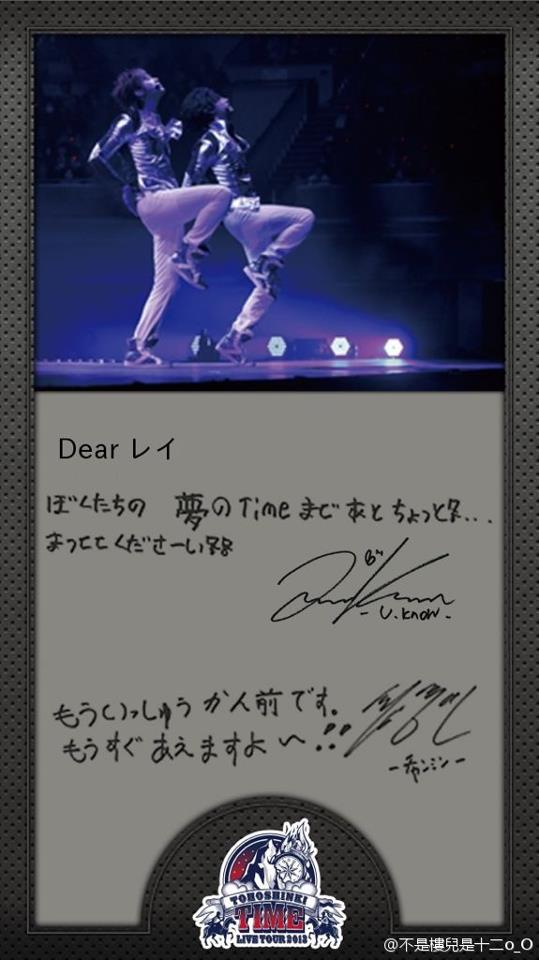 Dear レイ
ぼくたちの 夢のTimeまであとちょっと...
まっててくださーい
- U.KnoW -
もういっしゅうかん前です。
もうすぐあえますよ〜!!
-チャンミン-
TOHOSHINKI
TIME
LIVE TOUR 2013
@不是樓兒是十二o_O